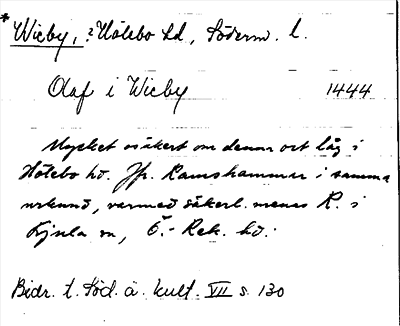 * Wieby, ? Hölebo hd, Söderm. l.
Olaf i Wieby 1444
Mycket osäkert om denna ort låg i
Hölebo hd. Jfr. Ramshammar i samma
urkund, varmed säkerl. menas R. i
Fjula sn, Ö.-Rek. hd.
Bidr. t. Söd. ä. kult. VII s. 130